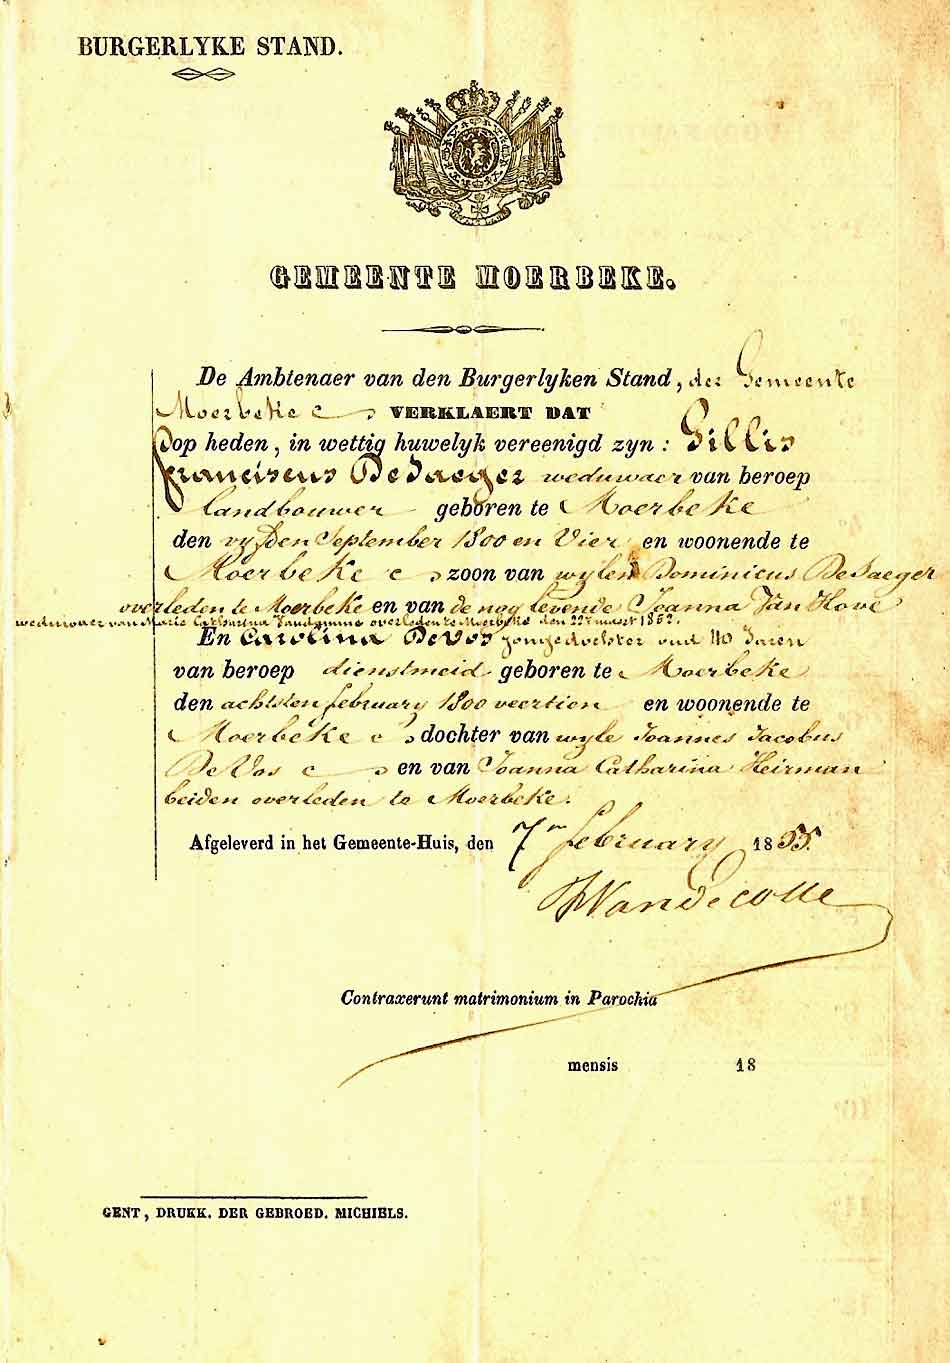 BURGERLYKE STAND.
GEMEENTE MOERBEKE.
De Ambtenaer van den Burgerlyken Stand, der Gemeente
Moerbeke VERKLAERT DAT
op heden, in wettig huwelyk vereenigd zyn: Gillis
Franciscus DeJaeger weduwaer van beroep
landbouwer geboren te Moerbeke
den vyfden September 1800 en Vier en woonende te
Moerbeke zoon van wylen Dominicus DeJaeger
overleden te Moerbeke en van de nog levende Joanna Van Hove
weduwaer van Marie Catharina overleden te Moerbeke den 22 maart 1852.
En Carolina DeVos jongedochter oud 40 Jaren
van beroep dienstmeid geboren te Moerbeke
den achtsten february 1800 veertien en woonende te
Moerbeke dochter van wyle Joannes Jacobus
DeVos en van Joanna Catharina Heirman
beiden overleden te Moerbeke.
Afgeleverd in het Gemeente-Huis, den 7en february 1855.
Contraxerunt matrimonium in Parochia
mensis 18
GENT, DRUKK. DER GEBROED. MICHIELS.